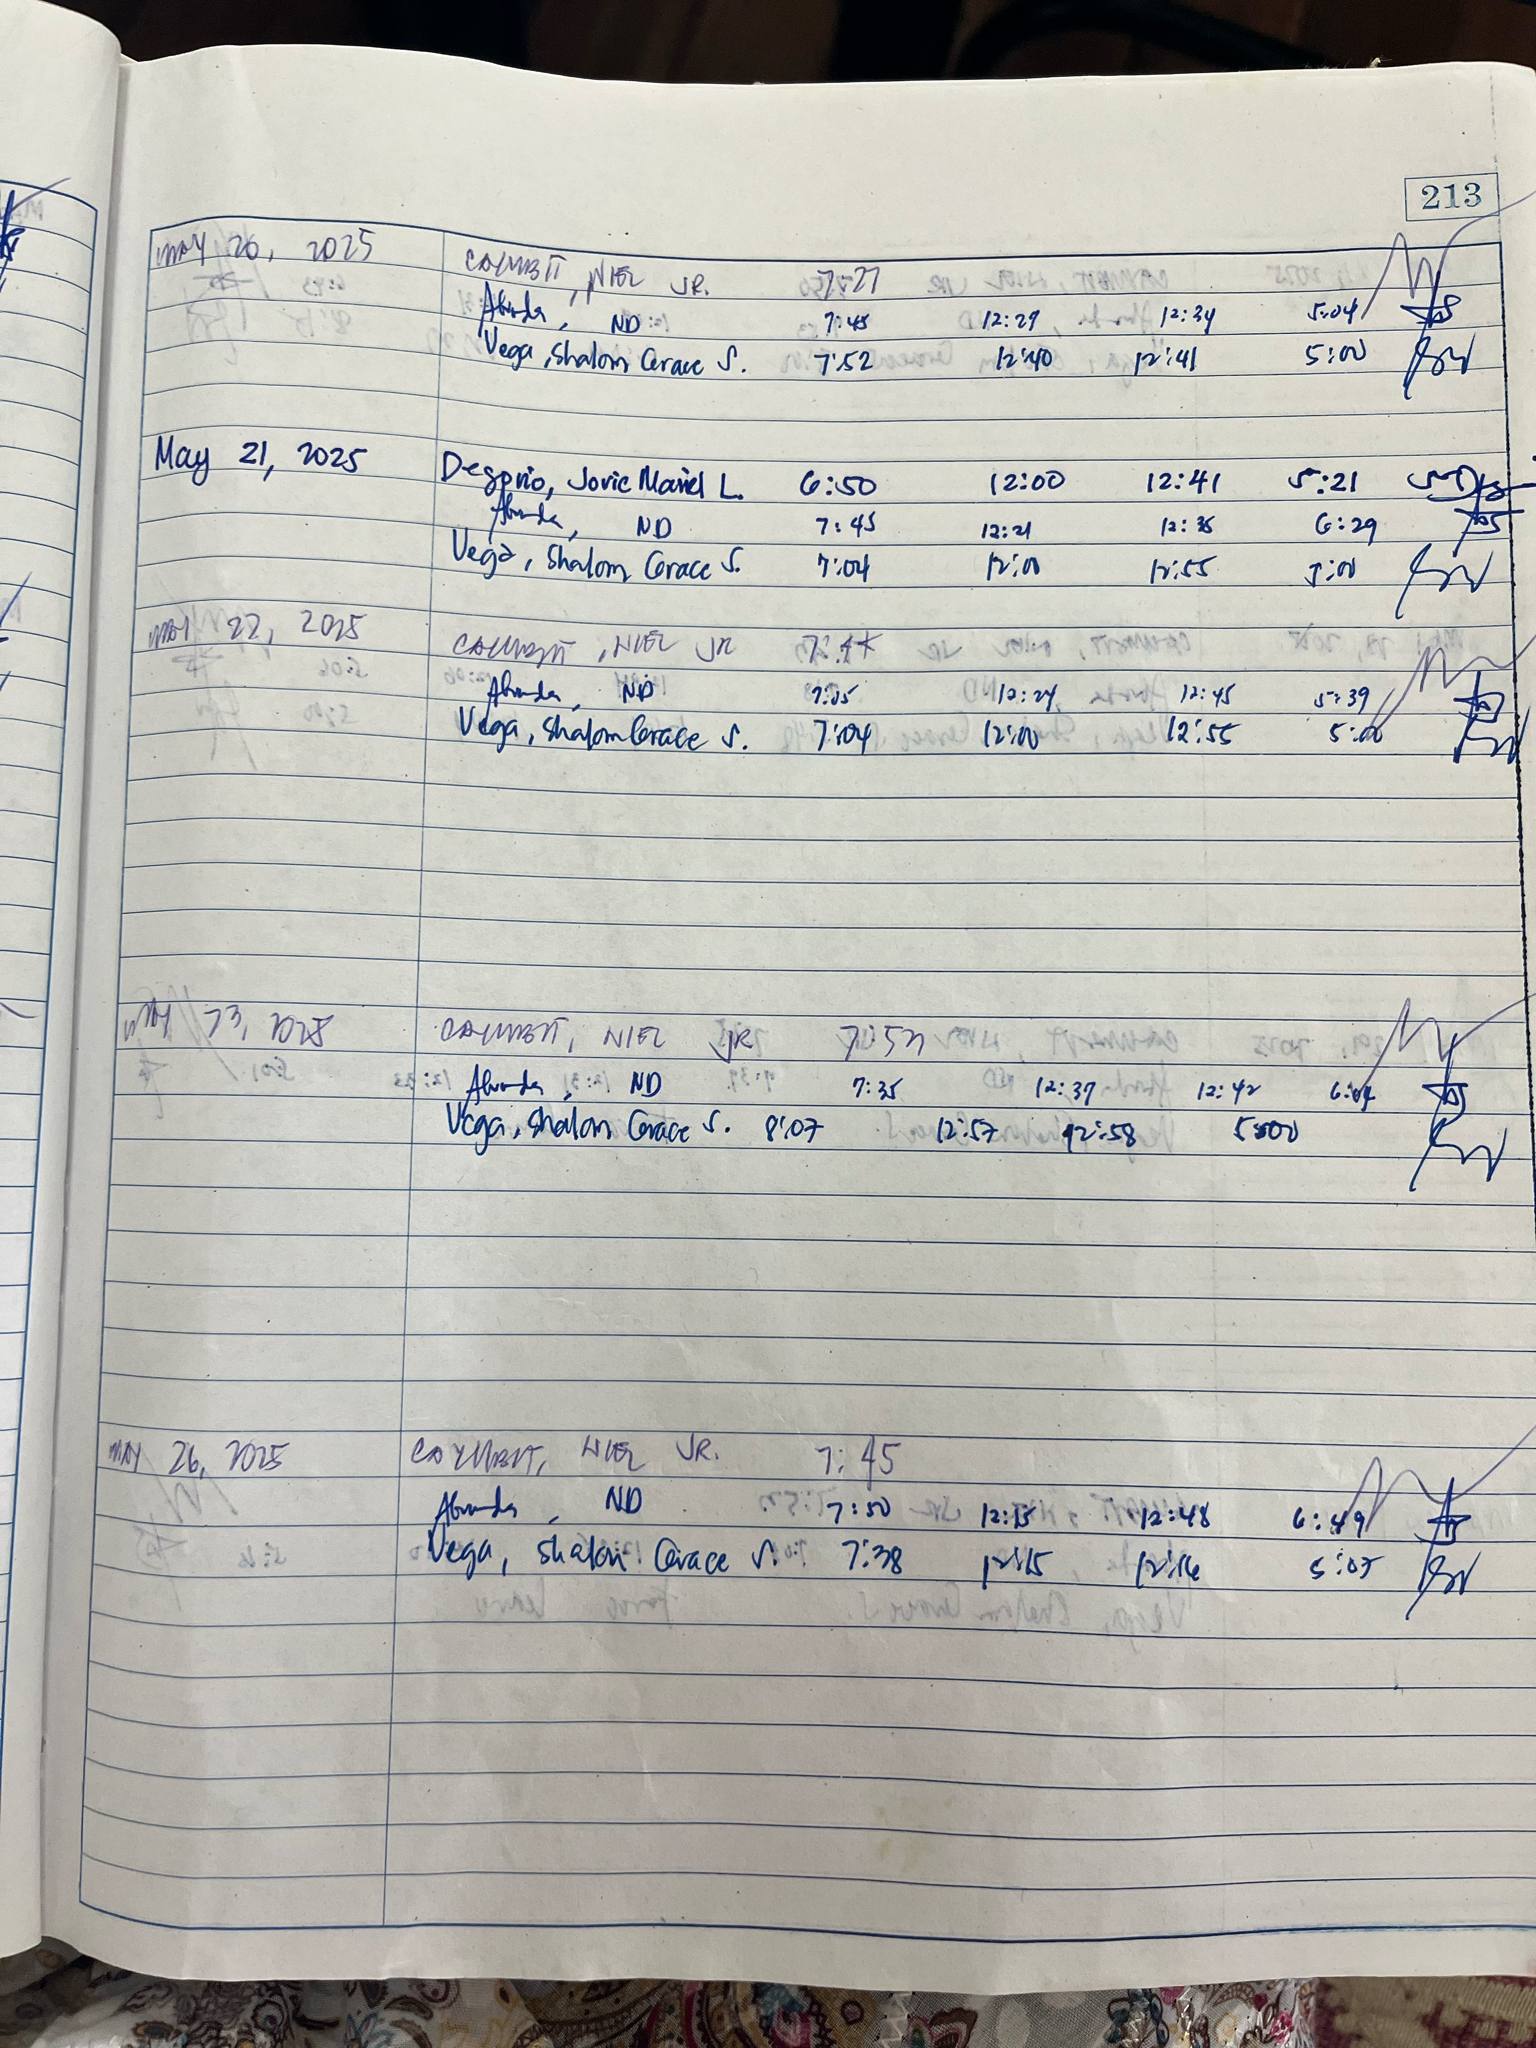 213
May 20, 2025 , NIEL JR. 7:27
, ND 7:45 12:29 12:34 5:04
Vega, Shalom Grace S. 7:52 12:40 12:41 5:00
May 21, 2025 Degorio, Joric Mariel L. 6:50 12:00 12:41 5:21
, ND 7:45 12:21 12:35 6:29
Vega, Shalom Grace S. 7:04 12:00 12:55 5:00
May 22, 2025 , NIEL JR
, ND 12:24 12:45 5:39
Vega, Shalom Grace S. 7:04 12:00 12:55 5:00
May 23, 2025 , NIEL JR
, ND 7:35 12:37 12:42 6:04
Vega, Shalom Grace S. 8:07 12:57 12:58 5:00
MAY 26, 2025 , NIEL JR. 7:45
, ND 7:50 12:15 12:48 6:49
Vega, Shalom Grace S. 7:38 12:15 12:16 5:07